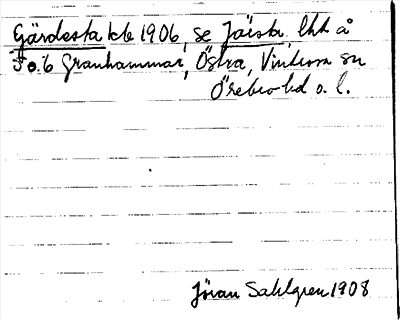 Gärdesta kb 1906, se Jälsta, lht å
5 o. 6 Granhammar, Östra, Vintrosa sn
Örebro hd o. l.
Jöran Sahlgren 1908